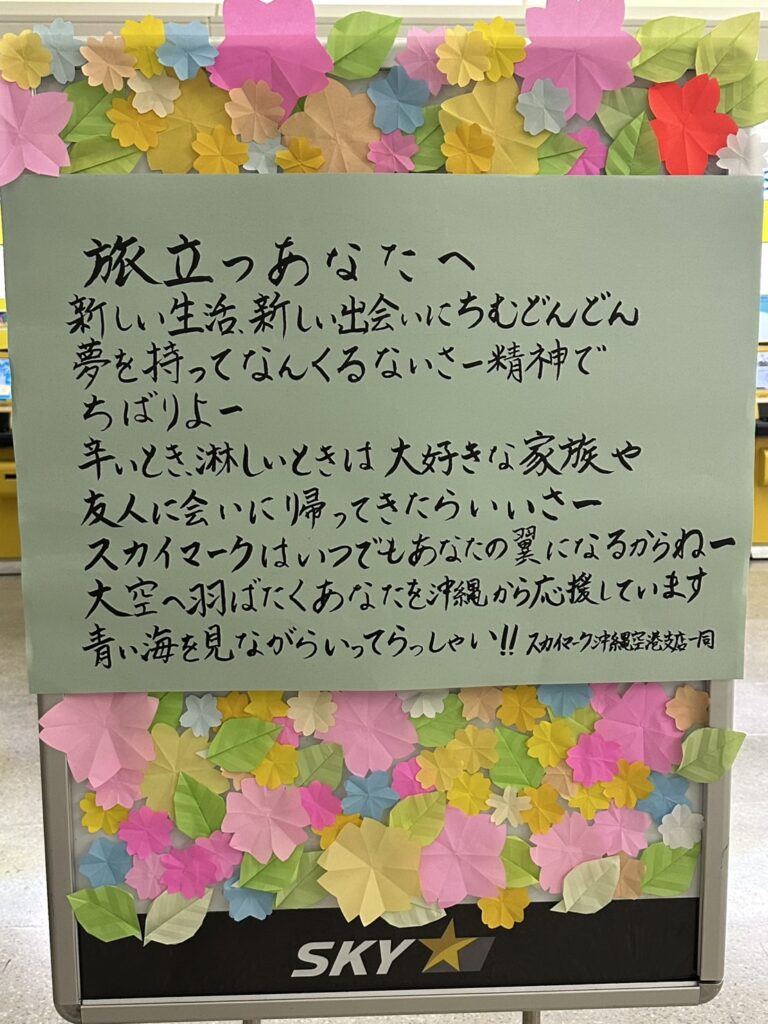 旅立つあなたへ
新しい生活、新しい出会いにちむどんどん
夢を持ってなんくるないさー精神で
ちばりよー
辛いとき、淋しいときは大好きな家族や
友人に会いに帰ってきたらいいさー
スカイマークはいつでもあなたの翼になるからねー
大空へ羽ばたくあなたを沖縄から応援しています
青い海を見ながらいってらっしゃい!! スカイマーク沖縄空港支店一同
SKY